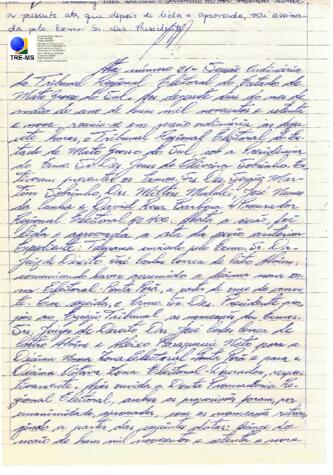 a presente ata, que depois de lida e aprovada, vai assina-
da pelo Exmo. Sr. Des. Presidente.
TRE-MS
Ata número 21 - Sessão Ordinária
do Tribunal Regional Eleitoral do Estado de
Mato Grosso do Sul. Aos dezessete dias do mês de
maio do ano de hum mil novecentos e setenta
e nove, reuniu-se em sessão ordinária às
horas, o Tribunal Regional Eleitoral do Es-
tado de Mato Grosso do Sul, sob a Presidência
do Exmo. Sr. Des. Jesus de Oliveira Sobrinho. Es-
tiveram presentes os Exmos. Srs. Drs. Sergio Mar-
tins Sobrinho, Drs. Milton Malulei, José Nunes
da Cunha e Barbosa e Procurador
Regional Eleitoral Aberta a sessão foi
lida e aprovada a ata da sessão anterior.
Expediente: Telegrama enviado pelo Exmo. Sr. Dr.
Juiz de Direito José Carlos Correa de Castro Alvim,
comunicando haver assumido a décima nona zo-
na Eleitoral - Ponta Porã, a partir de onze do corren-
te. Em seguida, o Exmo. Sr. Des. Presidente pro-
pôs ao Egrégio Tribunal as nomeações dos Exmos.
Srs. Juízes de Direito Drs. José Carlos Correa de
Castro Alvim e Neto para a
Décima Nona Zona Eleitoral - Ponta Porã e para a
Décima Oitava Zona Eleitoral - Dourados, respec-
tivamente. Após ouvida a Douta Procuradoria Re-
gional Eleitoral, ambas as proposições foram, por
unanimidade, aprovadas, com as nomeações retroa-
gindo a partir das seguintes datas: quinze de
maio de hum mil novecentos e setenta e nove